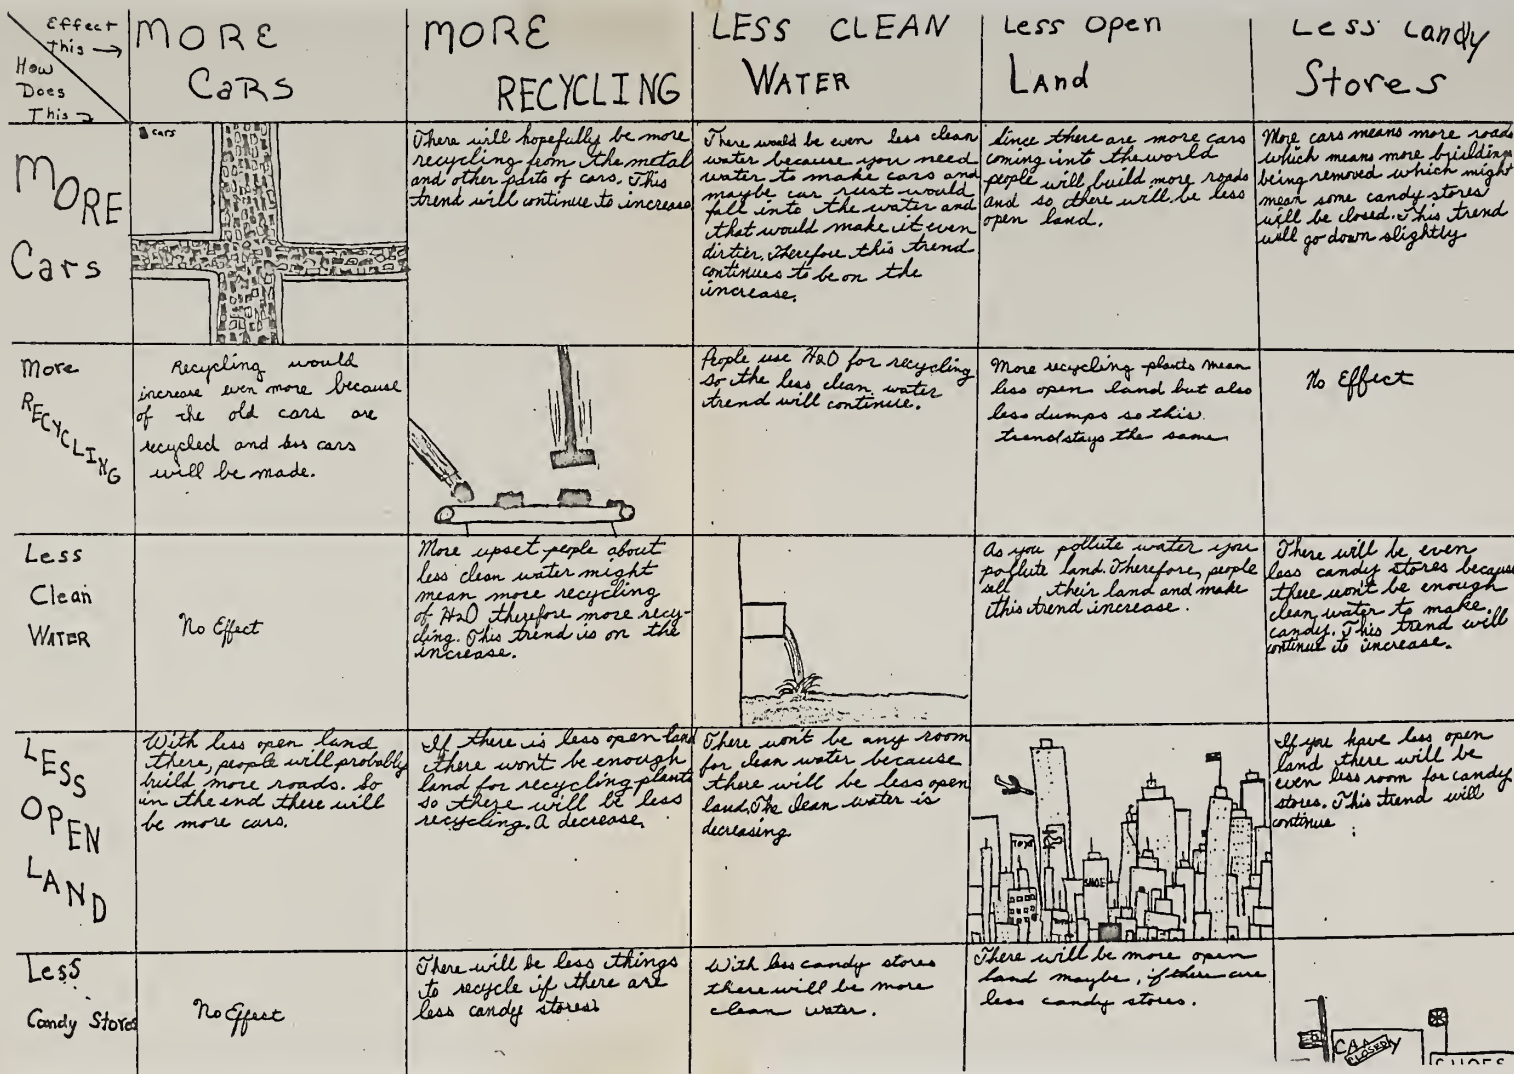 Effect
this →
How
Does
This
MORE
CaRS
MORE
RECYCLING
LESS CLEAN
WATER
Less Open
Land
Less Candy
Stores
MORE
Cars
cars
There will hopefully be more
recycling from the metal
and other parts of cars. This
trend will continue to increase
There would be even less clean
water because you need
water to make cars and
maybe car rust would
fall into the water and
that would make it even
dirtier. Therefore this trend
continues to be on the
increase.
Since there are more cars
coming into the world
people will build more roads
and so there will be less
open land.
More cars means more roads
which means more buildings
being removed which might
mean some candy stores
will be closed. This trend
will go down slightly
More
RECYCLING
Recycling would
increase even more because
of the old cars are
recycled and less cars
will be made.
People use H2O for recycling
so the less clean water
trend will continue.
More recycling plants mean
less open land but also
less dumps so this
trend stays the same
No Effect
Less
Clean
WATER
No Effect
More upset people about
less clean water might
mean more recycling
of H2O therefore more recy-
cling. This trend is on the
increase.
As you pollute water you
pollute land. Therefore, people
sell their land and make
this trend increase.
There will be even
less candy stores because
there won't be enough
clean water to make
candy. This trend will
continue to increase.
LESS
OPEN
LAND
With less open land
there, people will probably
build more roads. So
in the end there will
be more cars.
If there is less open land
there won't be enough
land for recycling plants
so there will be less
recycling. A decrease.
There won't be any room
for clean water because
there will be less open
land. The clean water is
decreasing
TOYS
SHOE
If you have less open
land there will be
even less room for candy
stores. This trend will
continue
Less
Candy Stores
No Effect
There will be less things
to recycle if there are
less candy stores.
With less candy stores
there will be more
clean water.
There will be more open
land maybe, if there are
less candy stores.
CLOSED
SHOES